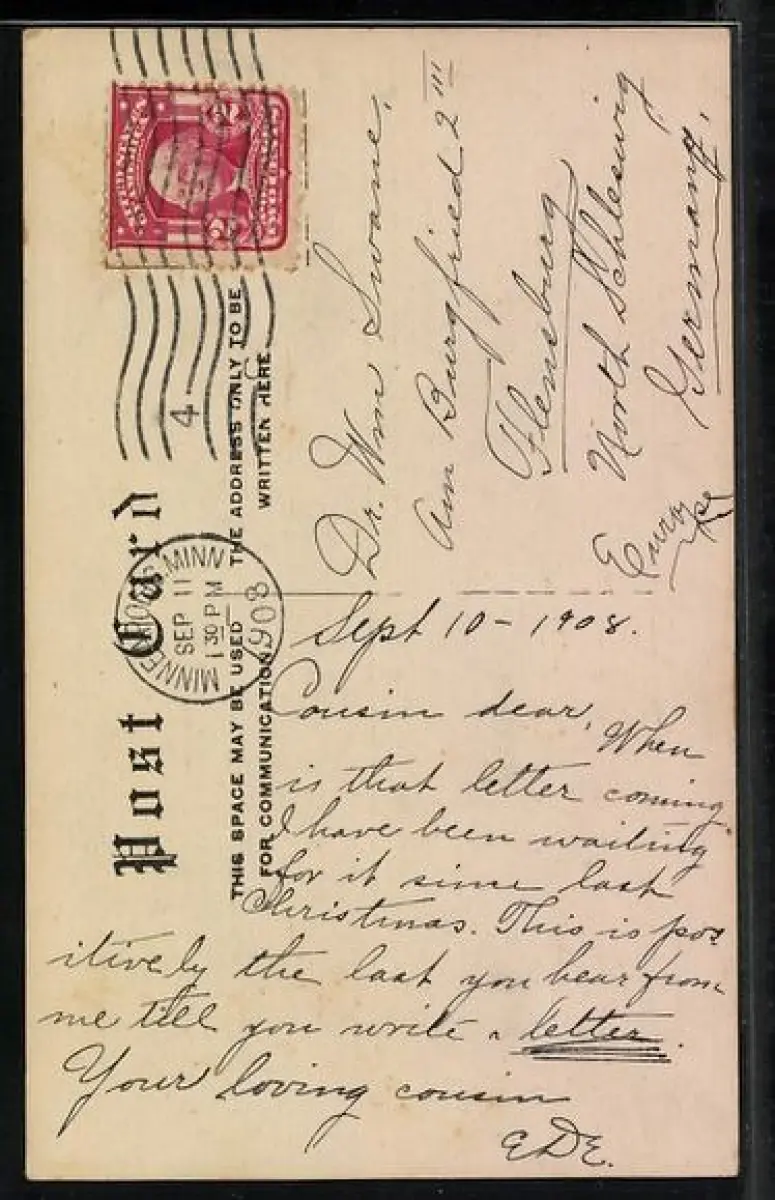 Post Card
THIS SPACE MAY BE USED
FOR COMMUNICATION
THE ADDRESS ONLY TO BE
WRITTEN HERE
MINNEAPOLIS, MINN
SEP 11
1 30 PM
1908
4
2 2
Dr. Wm Swame,
Am Burgfried 2 III
Flensburg
North Schleswig
Germany,
Europe
Sept 10 - 1908.
Cousin dear, When
is that letter coming.
I have been waiting
for it since last
Christmas. This is pos
itively the last you hear from
me till you write a letter.
Your loving cousin
EDE.